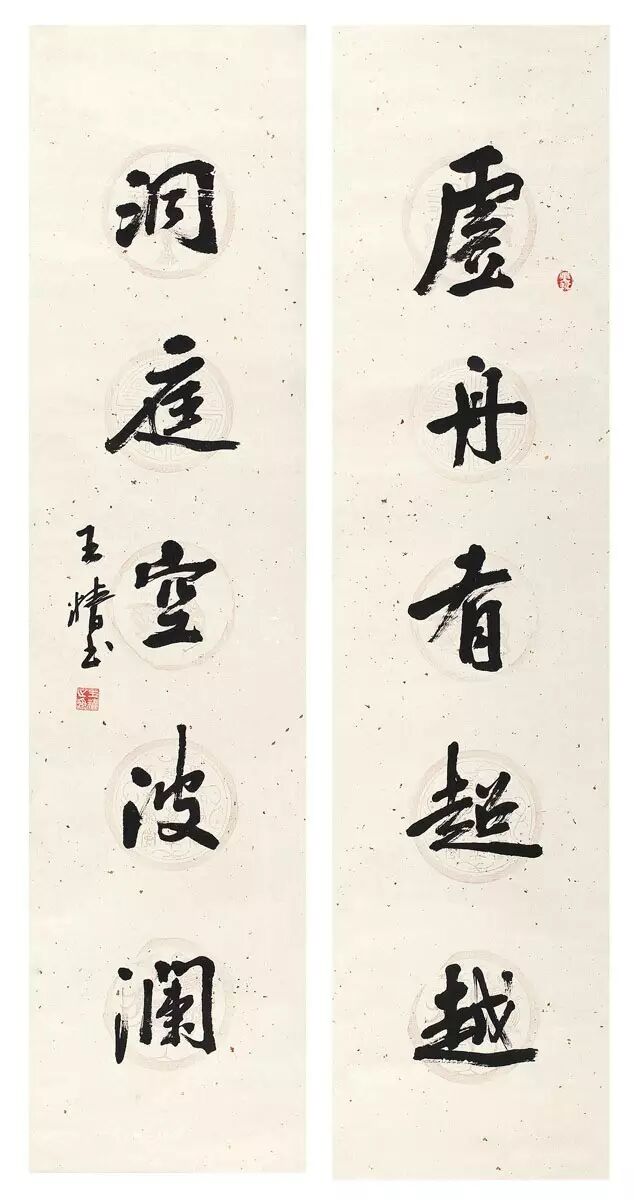 虚舟有超越
洞庭空波澜
王